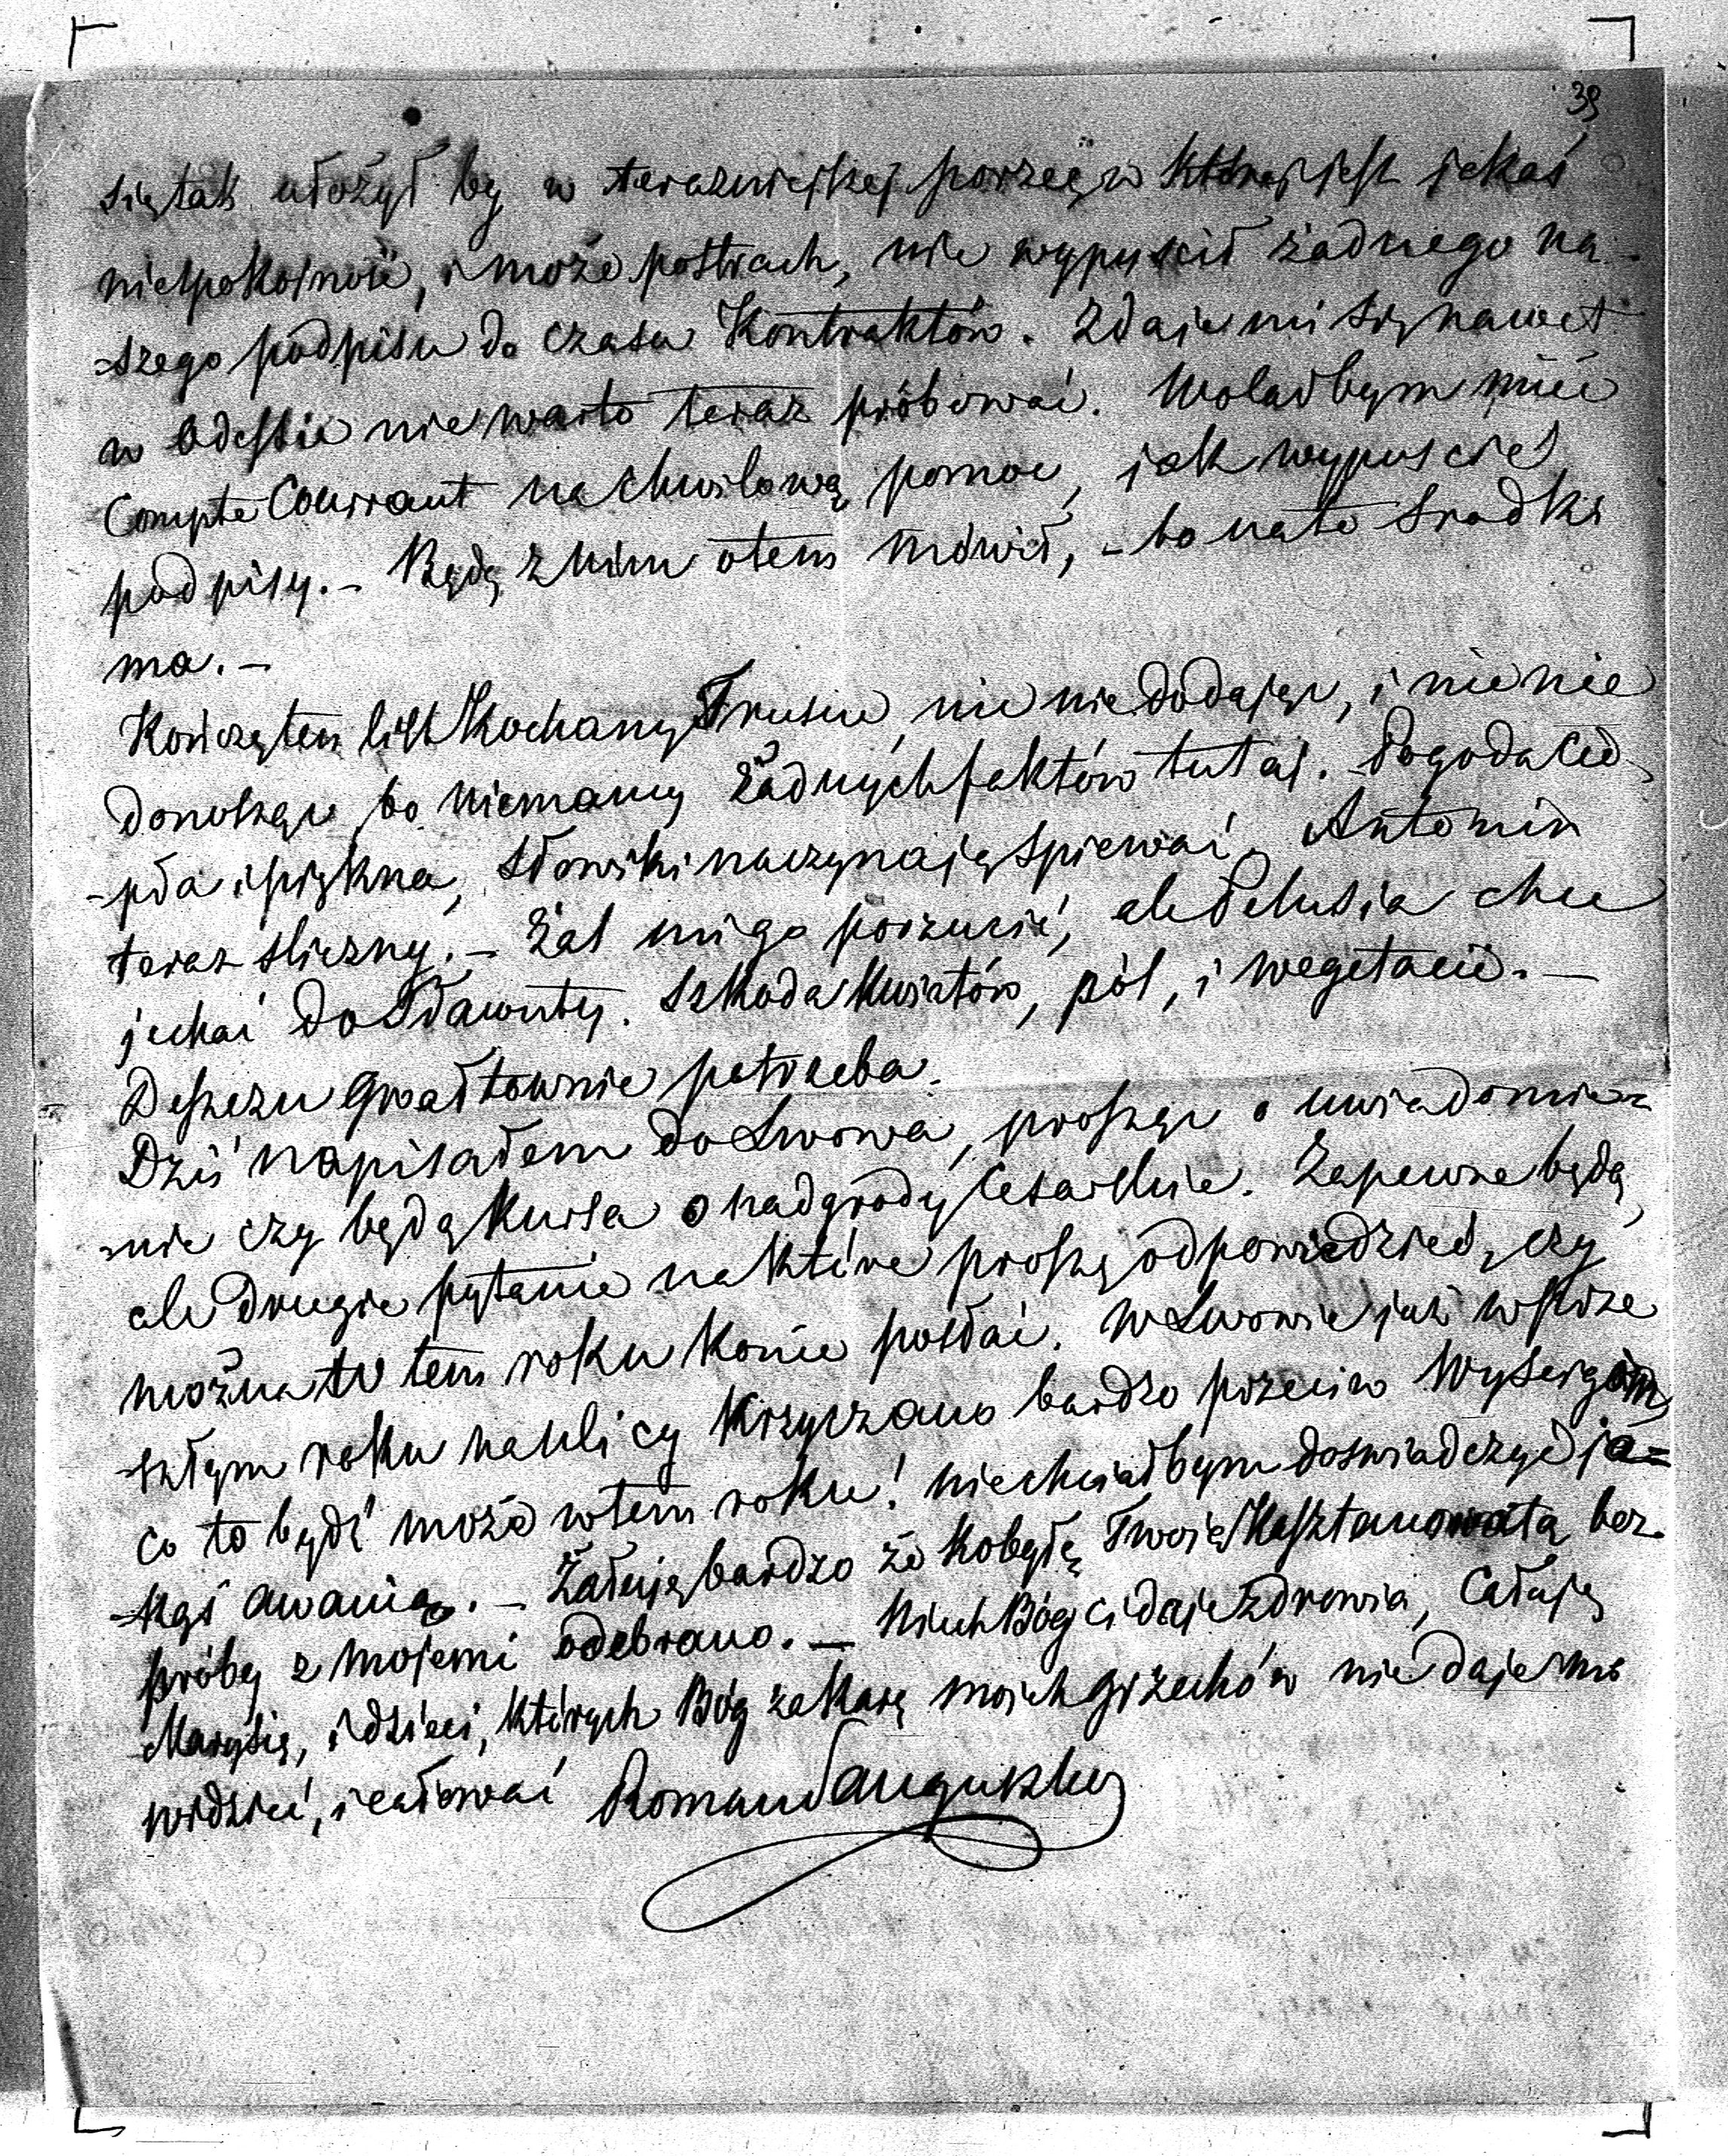 39
się tak ułożył by w terazniejszej porze, w której jest jakaś
niespokojność, i może postrach, nie wypuscił żadnego na-
-szego podpisu do czasu Kontraktów. Zdaje mi się nawet
w Odessie nie warto teraz próbować. Wolałbym mieć
Compte Courrant na chwilową pomoc, jak wypuscieć
podpisy. - Będę z nim otem mówił, - bo nato srodki
ma. -
Kończę ten list Kochany Trusiu, nic nie dodając, i nic nie
donosząc, bo niemamy żadnych faktów tutaj. - Pogoda cie-
-pła i piękna, słowiki naczynają spiewać, Antonin
teraz sliczny. - Żal mi go porzucić, ale Pelusia chce
jechać do Sławuty. Szkoda kwiatów, pól, i wegetacii. -
Deszczu gwałtownie potrzeba.
Dziś napisałem do Lwowa, prosząc o uwiadomie=
=nie czy będą kursa o nadgrody Cesarskie. Zapewne będą,
ale drugie pytanie na które proszę odpowiedzieć, czy
można w tem roku konie posłać. W Lwowie już w prze
-szłym roku na ulicy krzyczano bardzo przeciw Wyscigom,
co to bydź może w tem roku! niechciałbym doswiadczyć ja=
-kąś awanią. - Żałuję bardzo że kobyłę Twoię Kasztanowatą bez
próby z mojemi odebrano. - Niech Bóg ci daje zdrowia, Całuję
Marysię, i dzieci, których Bóg za karę moich grzechów nie daje mi
widzieć, i całować Roman Sanguszko